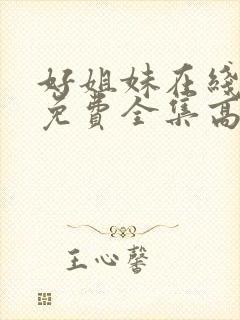 好姐妹在线
免费全集高
王心馨